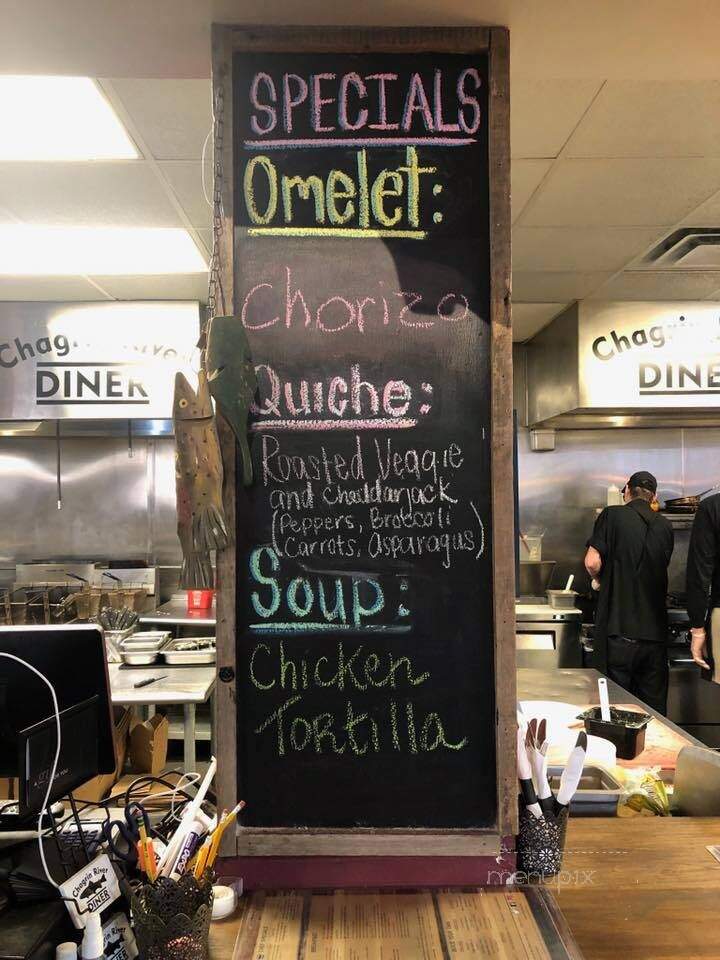 SPECIALS
Omelet:
Chorizo
Quiche:
Roasted Veggie
and Cheddarjack
(Peppers, Broccoli
Carrots, Asparagus)
Soup:
Chicken
Tortilla
DINER
DINE
Chagrin River
DINER
menupix